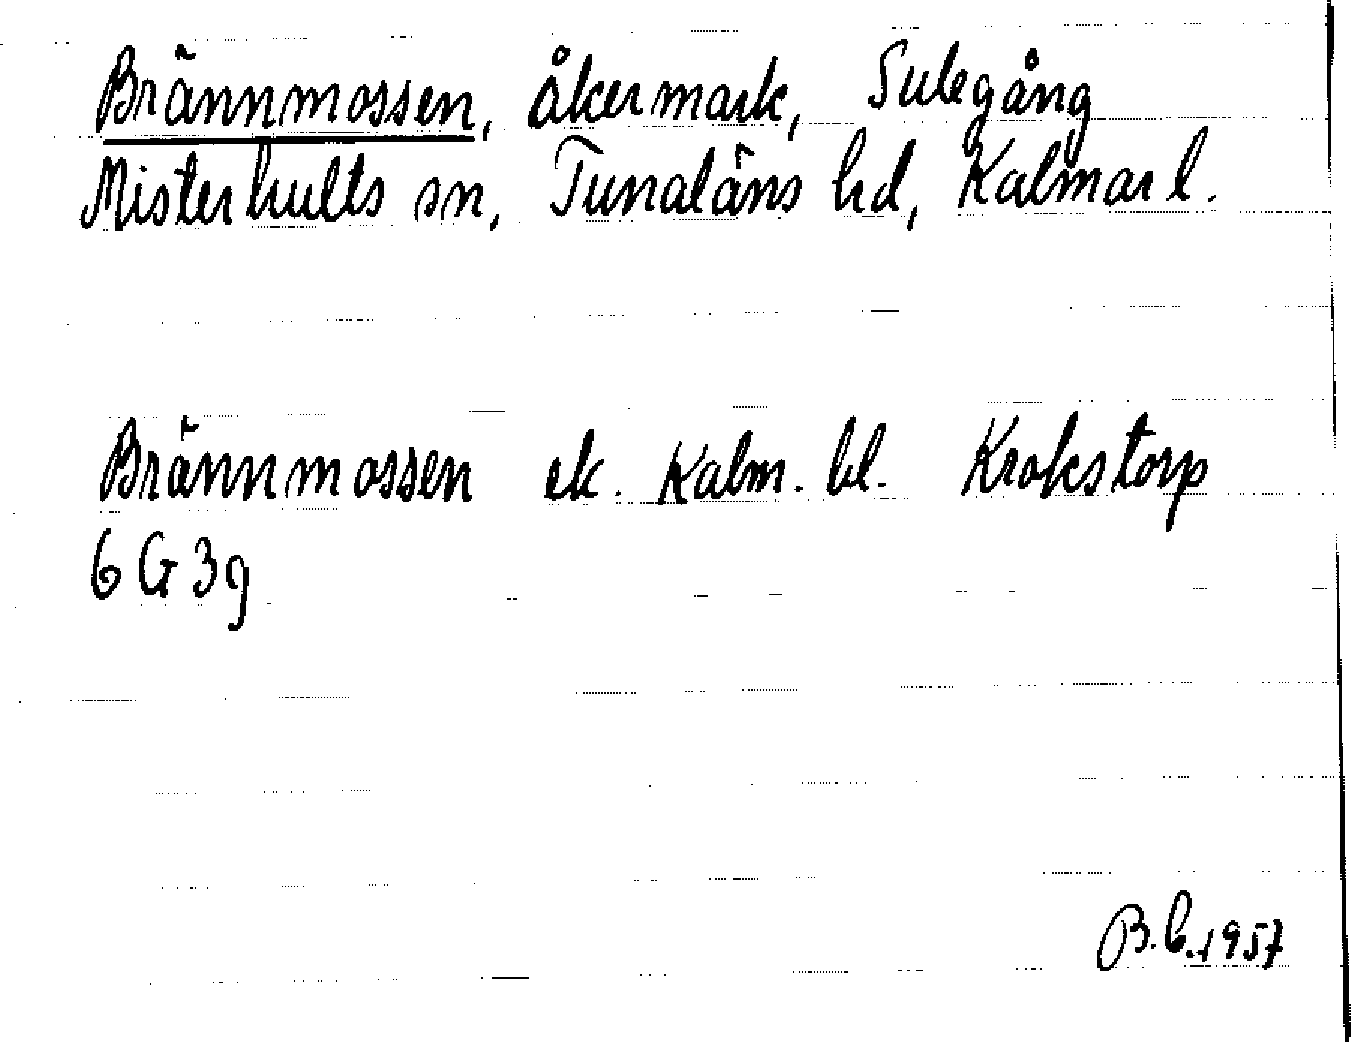 Brännmossen, åkermark, Sulegång
Misterhults sn, Tunaläns hd, Kalmar l.
Brännmossen ek. Kalm. bl. Krokstorp
6 G 3g
B.C. 1957